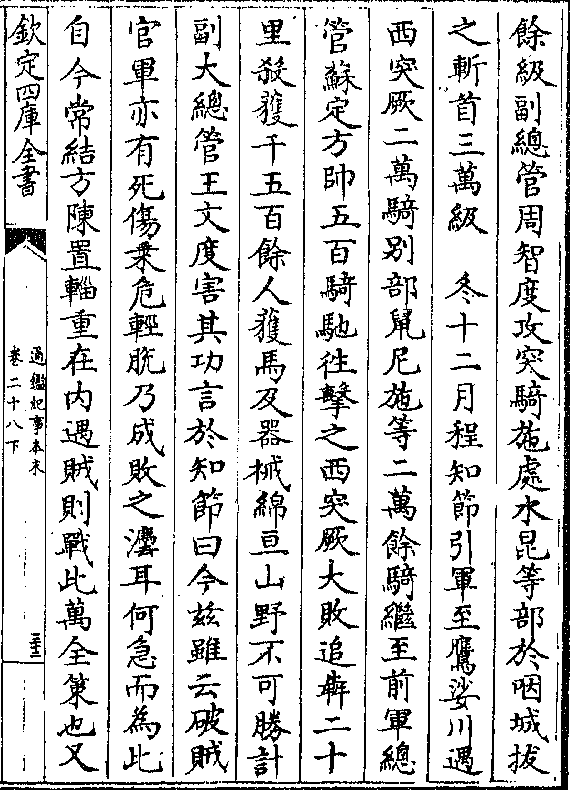 餘級副總管周智度攻突騎施處水昆等部於咽城拔
之斬首三萬級　冬十二月程知節引軍至鷹娑川遇
西突厥二萬騎别部鼠尼施等二萬餘騎繼至前軍總
管蘇定方帥五百騎馳徃擊之西突厥大敗追犇二十
里殺獲千五百餘人獲馬及器械綿亘山野不可勝計
副大總管王文度害其功言於知節曰今兹雖云破賊
官軍亦有死傷乗危輕脱乃成敗之灋耳何急而為此
自今常結方陳置輜重在内遇賊則戰此萬全策也又
欽定四庫全書
通鑑紀事本末
卷二十八下
三十二